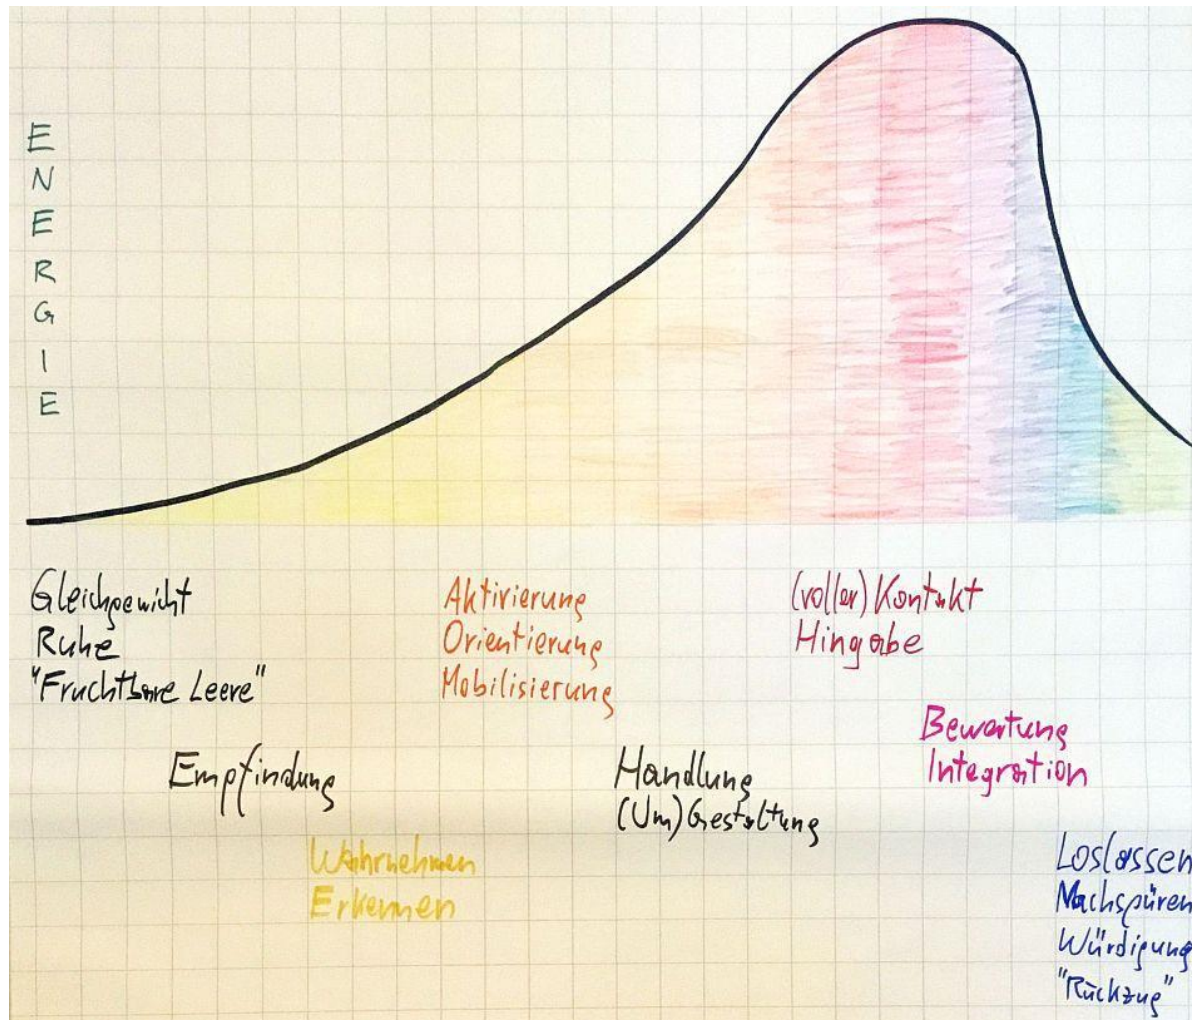 ENERGIE
Gleichgewicht
Ruhe
"Fruchtbare Leere"
Empfindung
Wahrnehmen
Erkennen
Aktivierung
Orientierung
Mobilisierung
Handlung
(Um)Gestaltung
(voller) Kontakt
Hingabe
Bewertung
Integration
Loslassen
Nachspüren
Würdigung
"Rückzug"